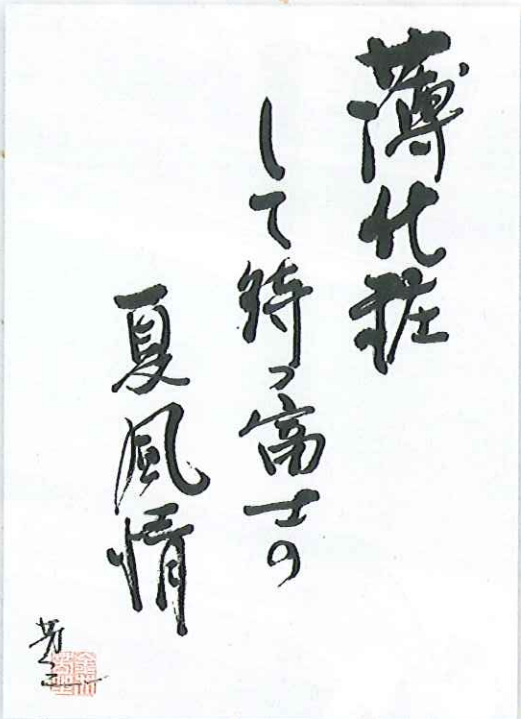 薄化粧
して待つ富士の
夏風情